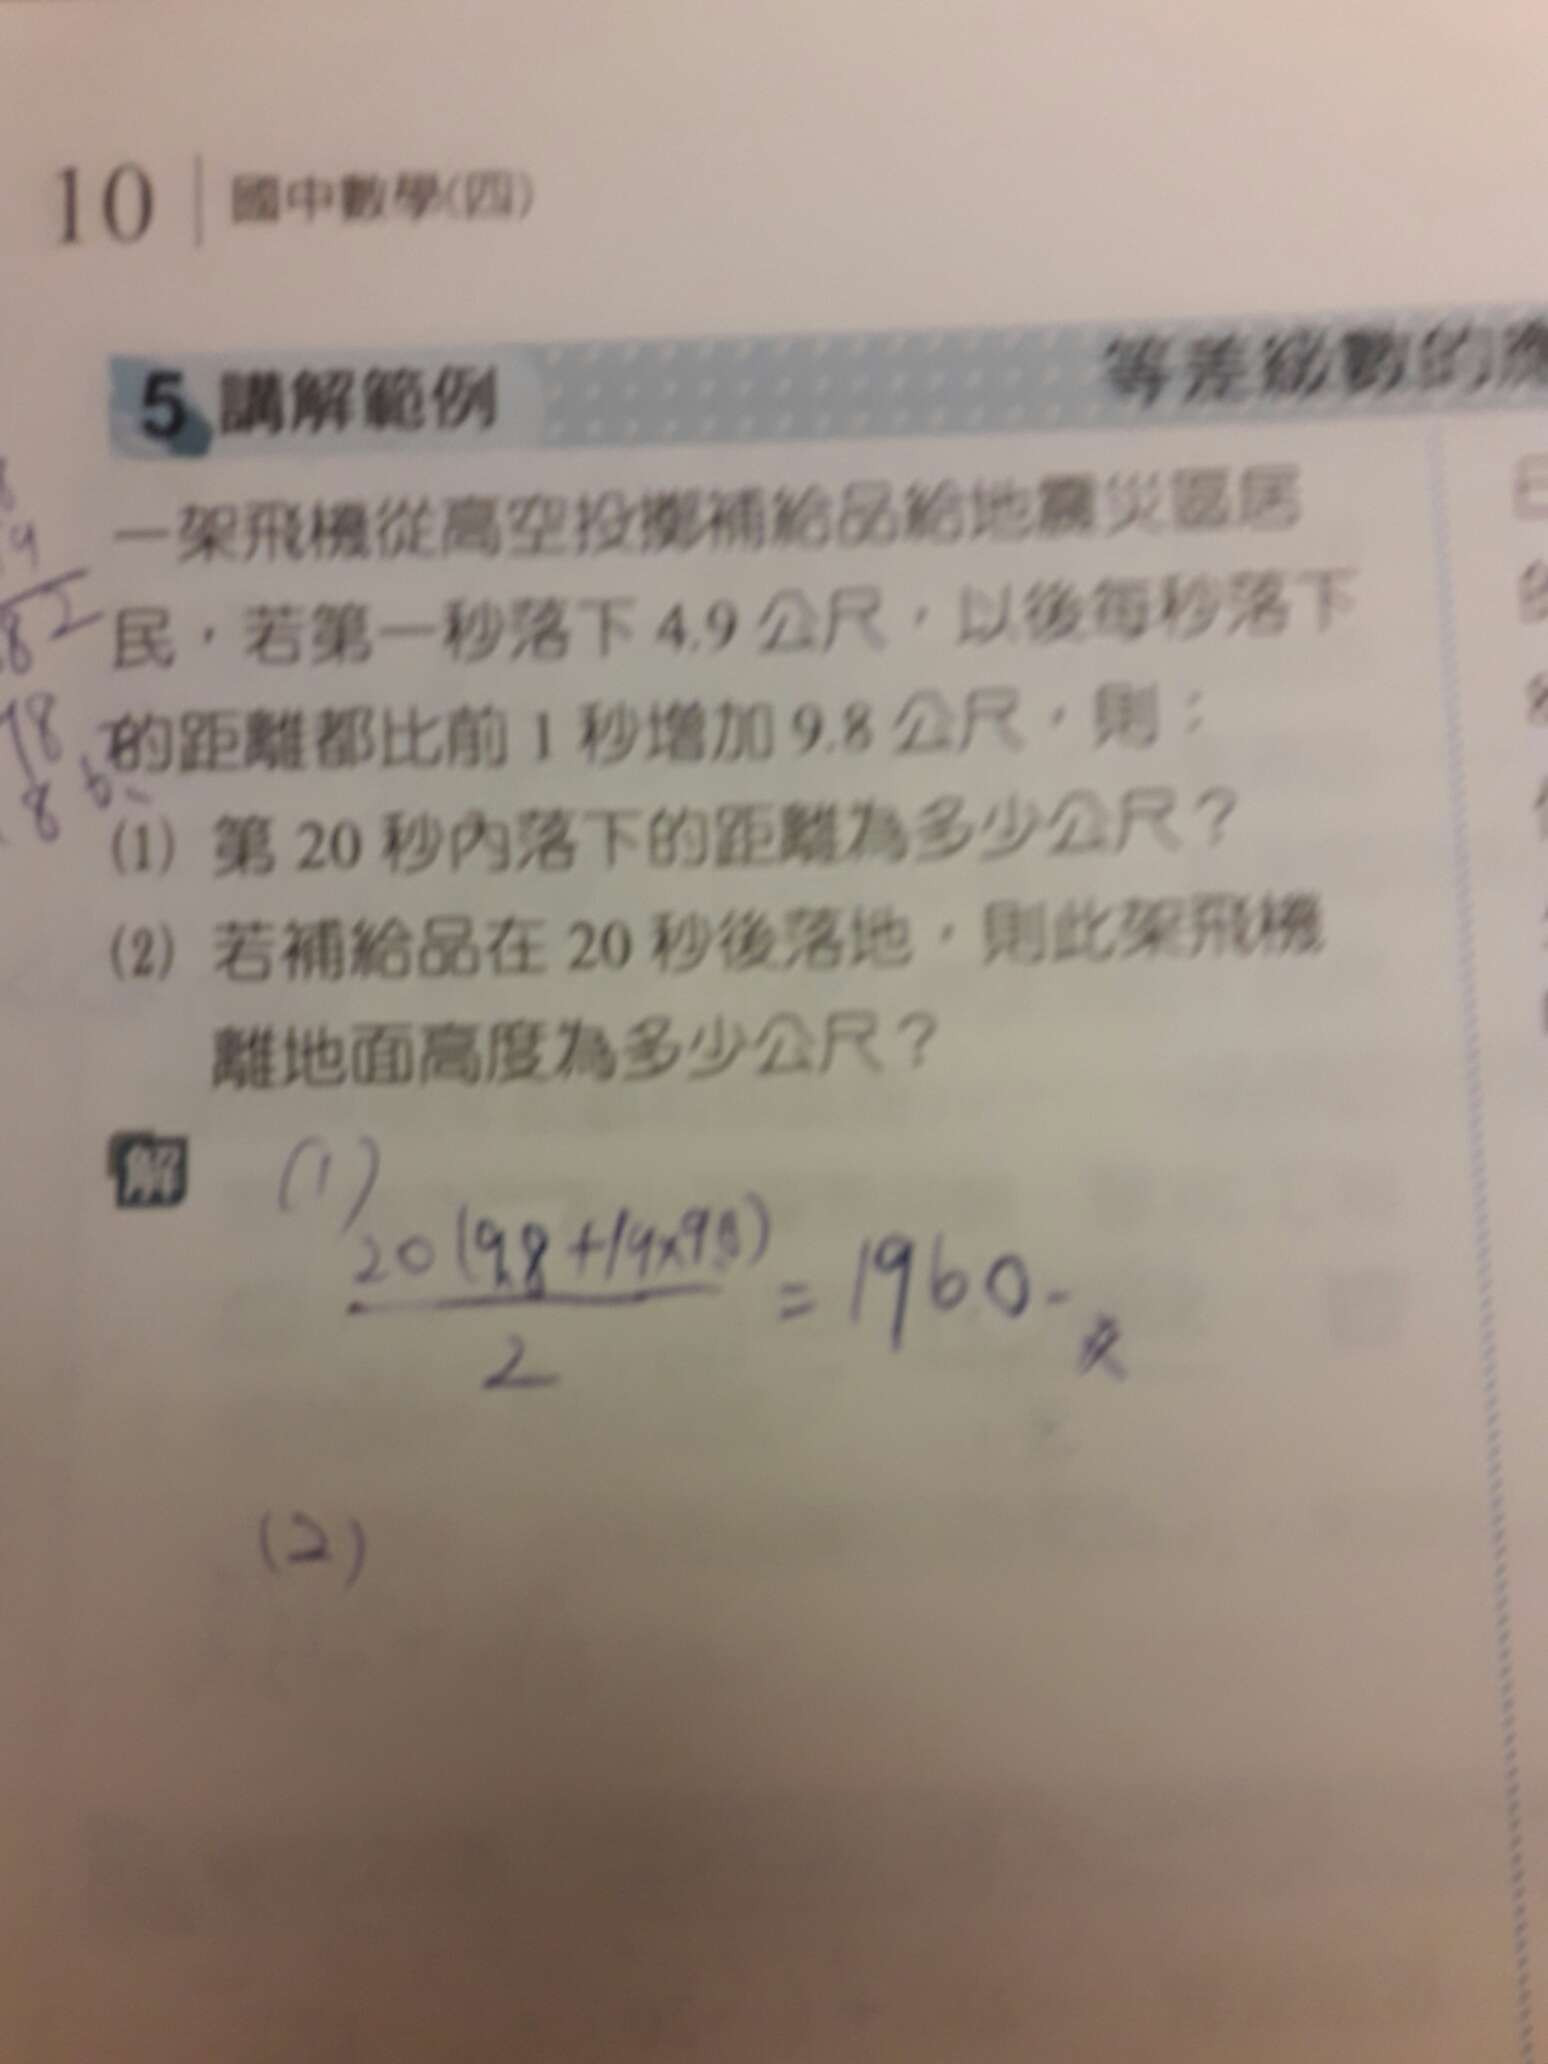 10 國中數學(四)
5 講解範例
等差級數的應
一架飛機從高空投擲補給品給地震災區居
民，若第一秒落下 4.9 公尺，以後每秒落下
的距離都比前 1 秒增加 9.8 公尺，則：
(1) 第 20 秒內落下的距離為多少公尺？
(2) 若補給品在 20 秒後落地，則此架飛機
離地面高度為多少公尺？
解 (1)
20(9.8+19×9.8)
= 1960
2
(2)